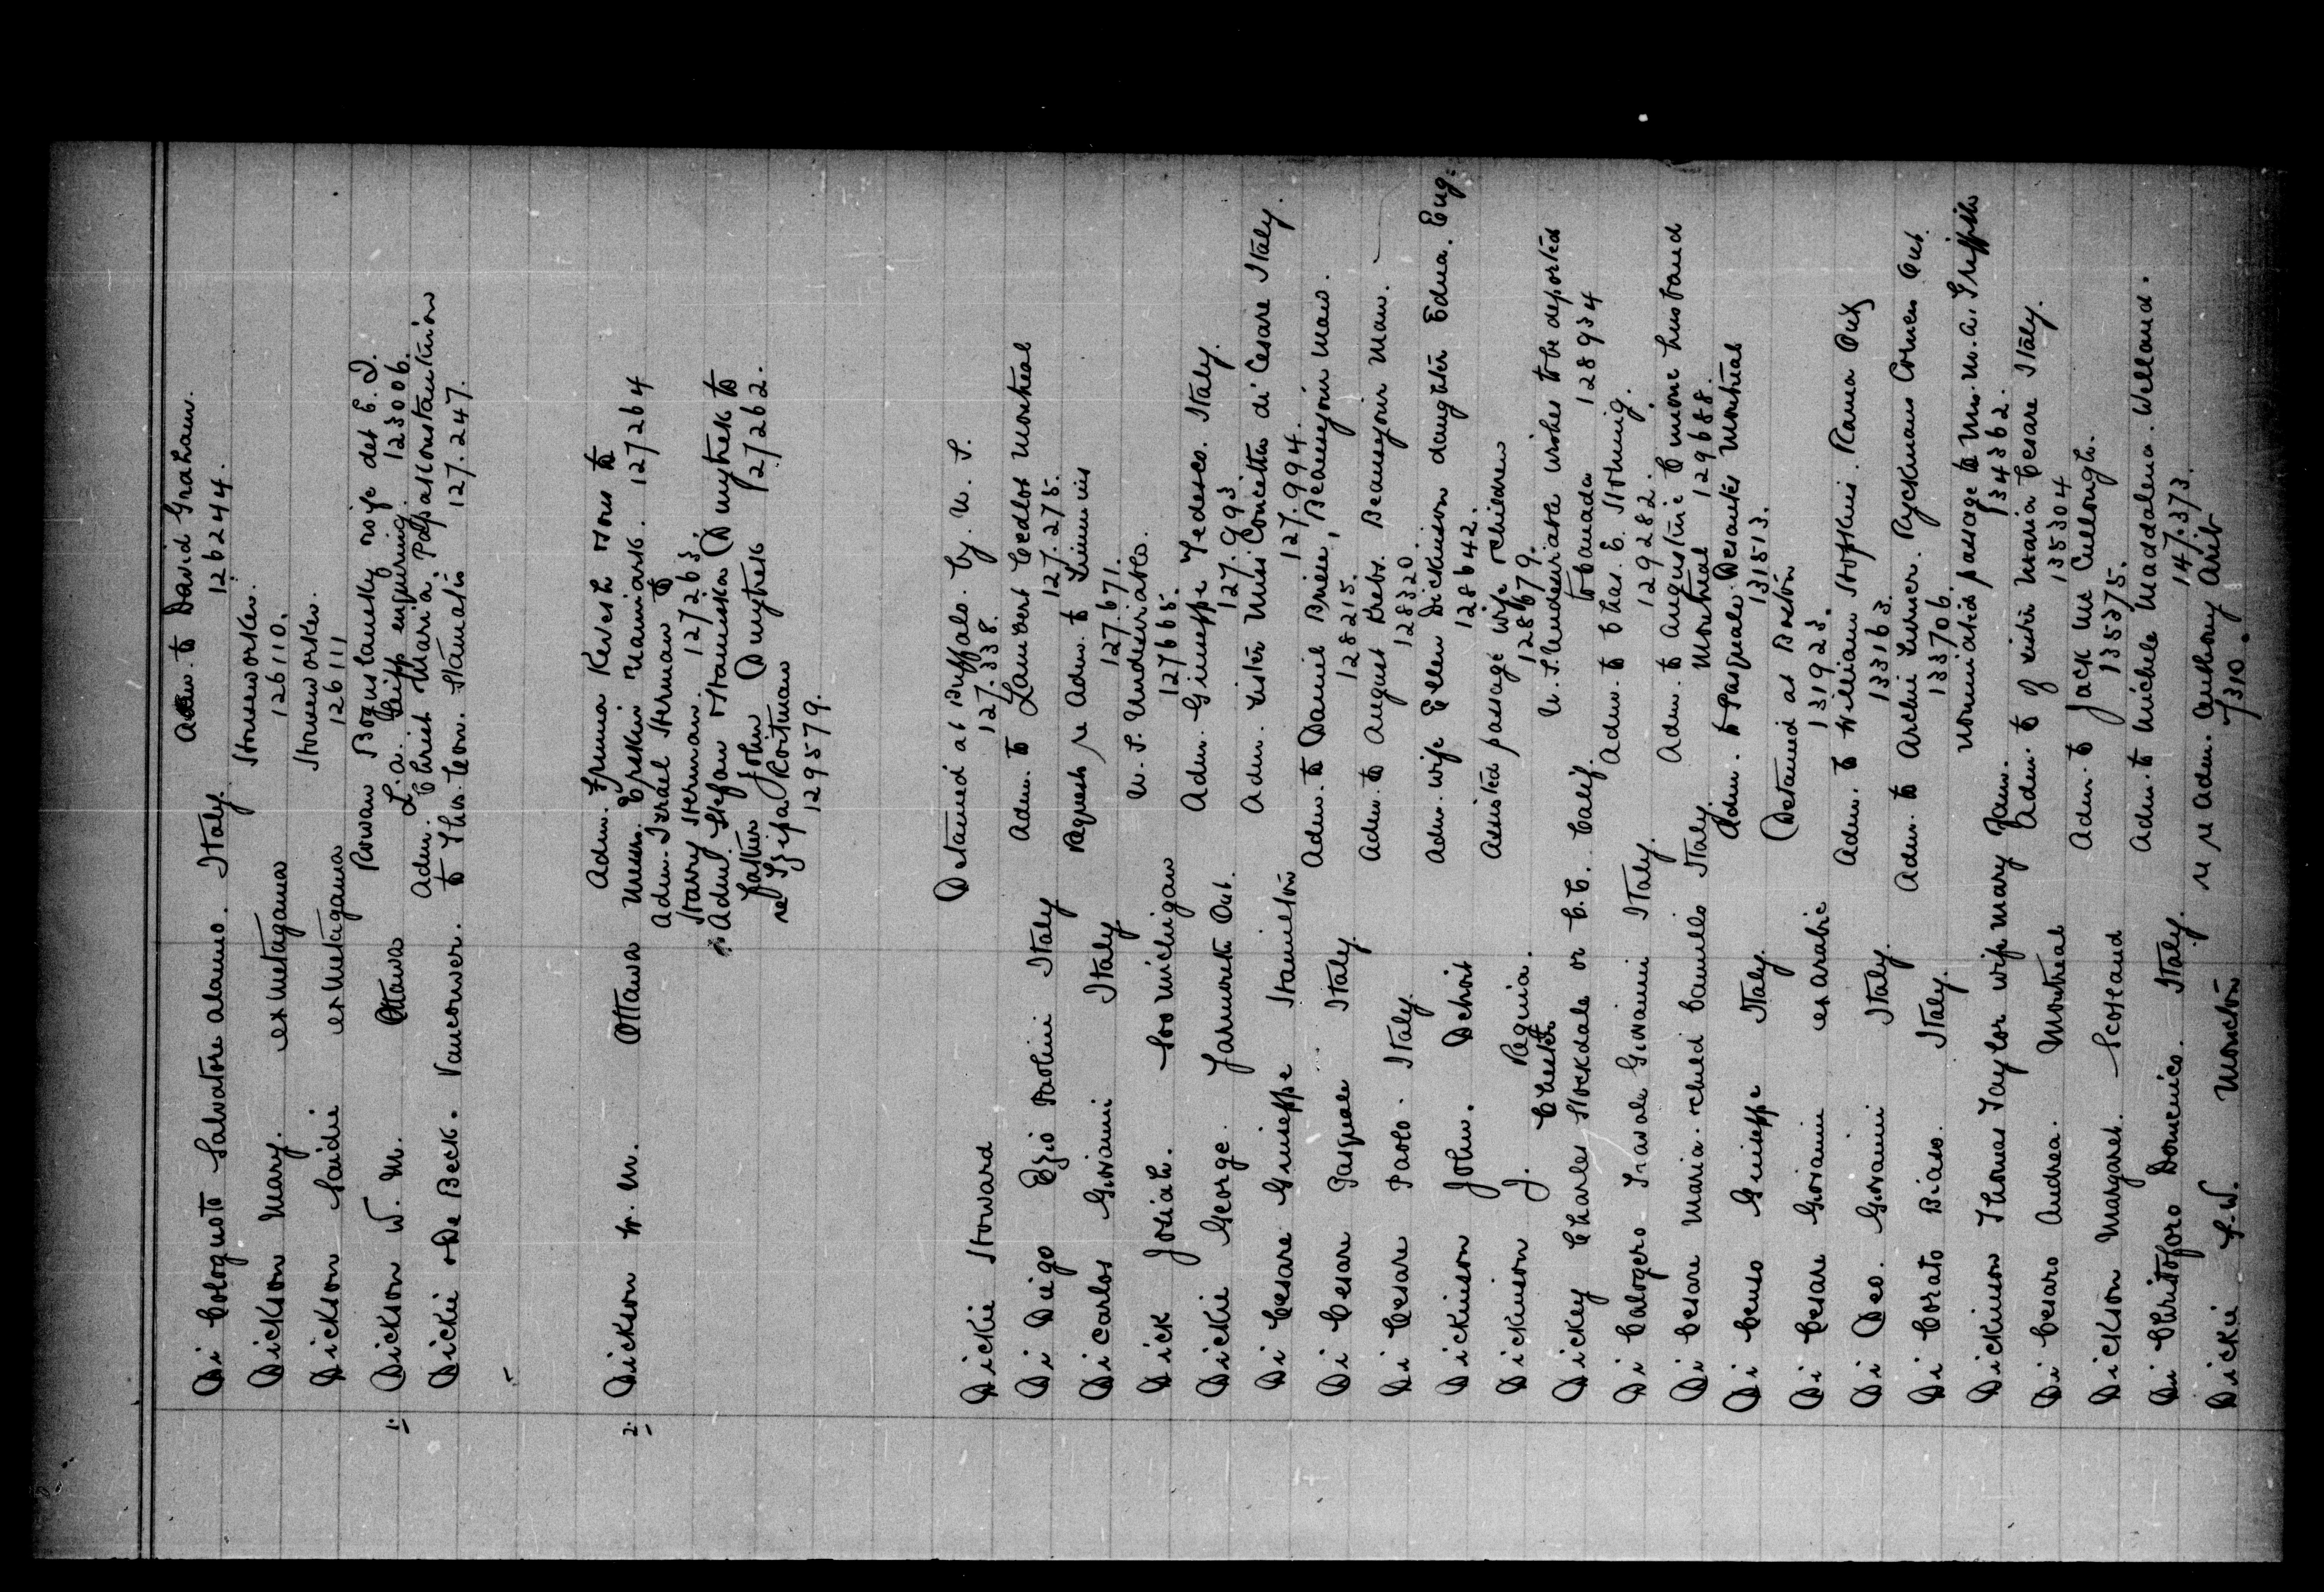 Di Cologusto Salvatore alamo. Italy. Adm. to David Graham.
126244.
Dickson Mary. ex Metagama Houseworker.
126110.
Dickson Saidie ex Metagama Houseworker.
126111
Rowan Boguslawsky wife det E. I.
1. Dickson W. M. Ottawa L.a. Seipp enquiring. 123006.
Adm. Christ Maria Papasconstantinion
Dickie & De Beck. Vancouver. to Thos. Leon. Stamatis 127.247.
Adm. Fruma Keresh & ors to
2. Dickson W. M. Ottawa Messrs. Erskin Naimark. 127264
Adm. Israel Herman to
Harry Herman. 127263.
Adm. Stefan & Hanuska Dmytrek to
father John Dmytrek 127262.
re Szifra Roitman
129579.
Dickie Howard Detained at Buffalo. by. U. S.
127.338.
Di Diego Ezio Paolini Italy Adm. to Lambert Cedlos Montreal
127.275.
Di Carlos Giovanni Italy Request re Adm. to
127.671.
Dick Josiah. Soo Michigan U. S. Undesirable.
127665.
Dickie George. Yarmouth Ont. Adm. Giuseppe Tedesco. Italy.
127.993
Di Cesare Giuseppe Hamilton Adm. sister Miss Concetta di Cesare Italy.
127.994.
Di Cesare Pasquale. Italy. Adm. to Daniel Briere, Beausejour Man.
128215.
Di Cesare Paolo. Italy. Adm. to August Krebs. Beausejour Man.
128320
Dickinson John. Detroit Adm. wife Ellen Dickinson daughter Edna. Eng.
128642.
Dickinson J. Regina. Assisted passage wife & children
128679.
Dickey Charles Stockdale or C.C. Calif. U. S. Undesirable wishes to be deported
to Canada 128934
Di Calogero Travale Giovanni Italy. Adm. to Chas. E. Horning.
129282.
Di Cesare Maria & child Camillo Italy Adm. to Augustine Cimone husband
Montreal 129688.
Di Censo Giuseppe Italy. Adm. to Pasquale Desantis Montreal
131513.
Di Cesare Giovanni ex Arabic Detained at Boston
131923.
Di Deo. Giovanni Italy. Adm. to William Hopkins. Rama Ont
133163.
Di Corato Biaso. Italy. Adm. to Archie Turner. Ryckmans Corners Ont.
133706.
Dickinson Thomas Taylor wife Mary Jam. Nominated passage to Mrs. M. A. Griffith
134362.
Di Cesaro Andrea. Montreal Adm. to of sister Maria Cesare Italy.
135304
Dickson Margaret. Scotland Adm. to Jack Mc Cullough.
135375.
Di Christoforo Domenico. Italy. Adm. to Michele Maddalena. Welland.
147.373.
Dickie S. W. Moncton re Adm. Anthony Arib
7310.